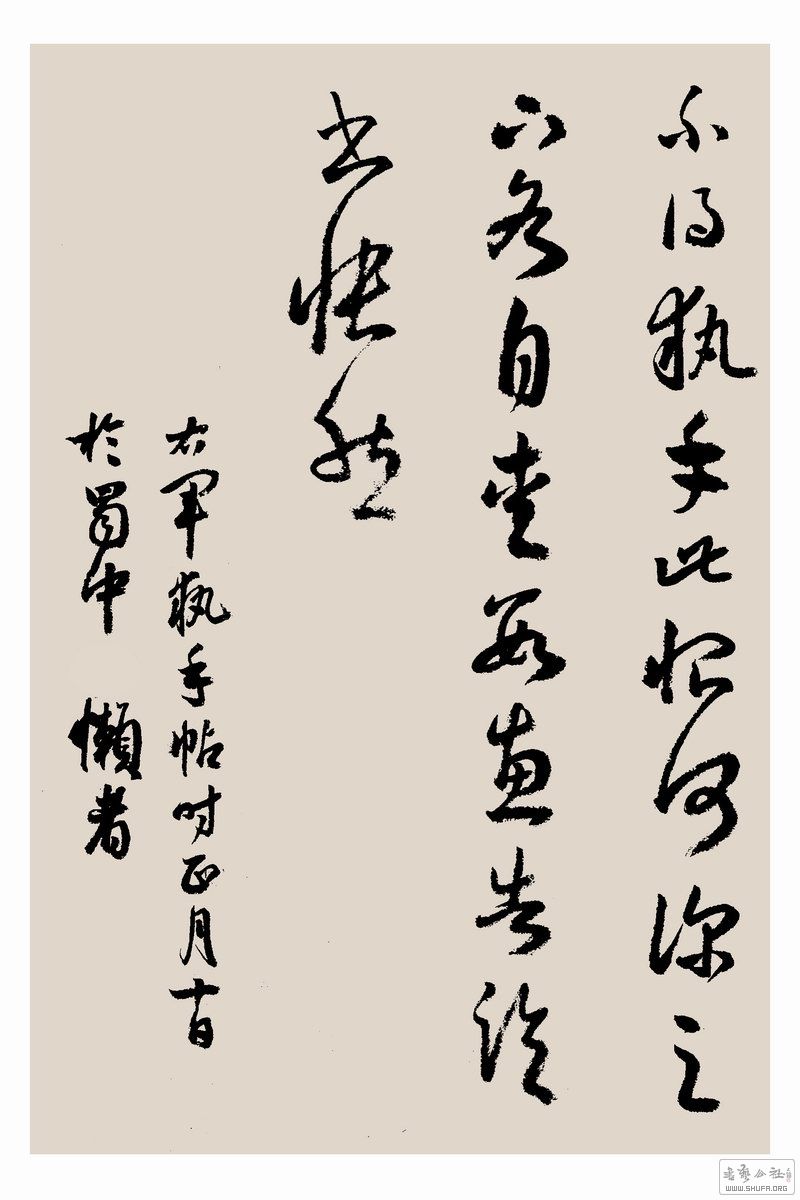 不得執手此恨何深足
下各自愛數惠告臨
書悵然
右軍執手帖时正月十日
於蜀中 懶者
書藝公社
WWW.SHUFA.ORG